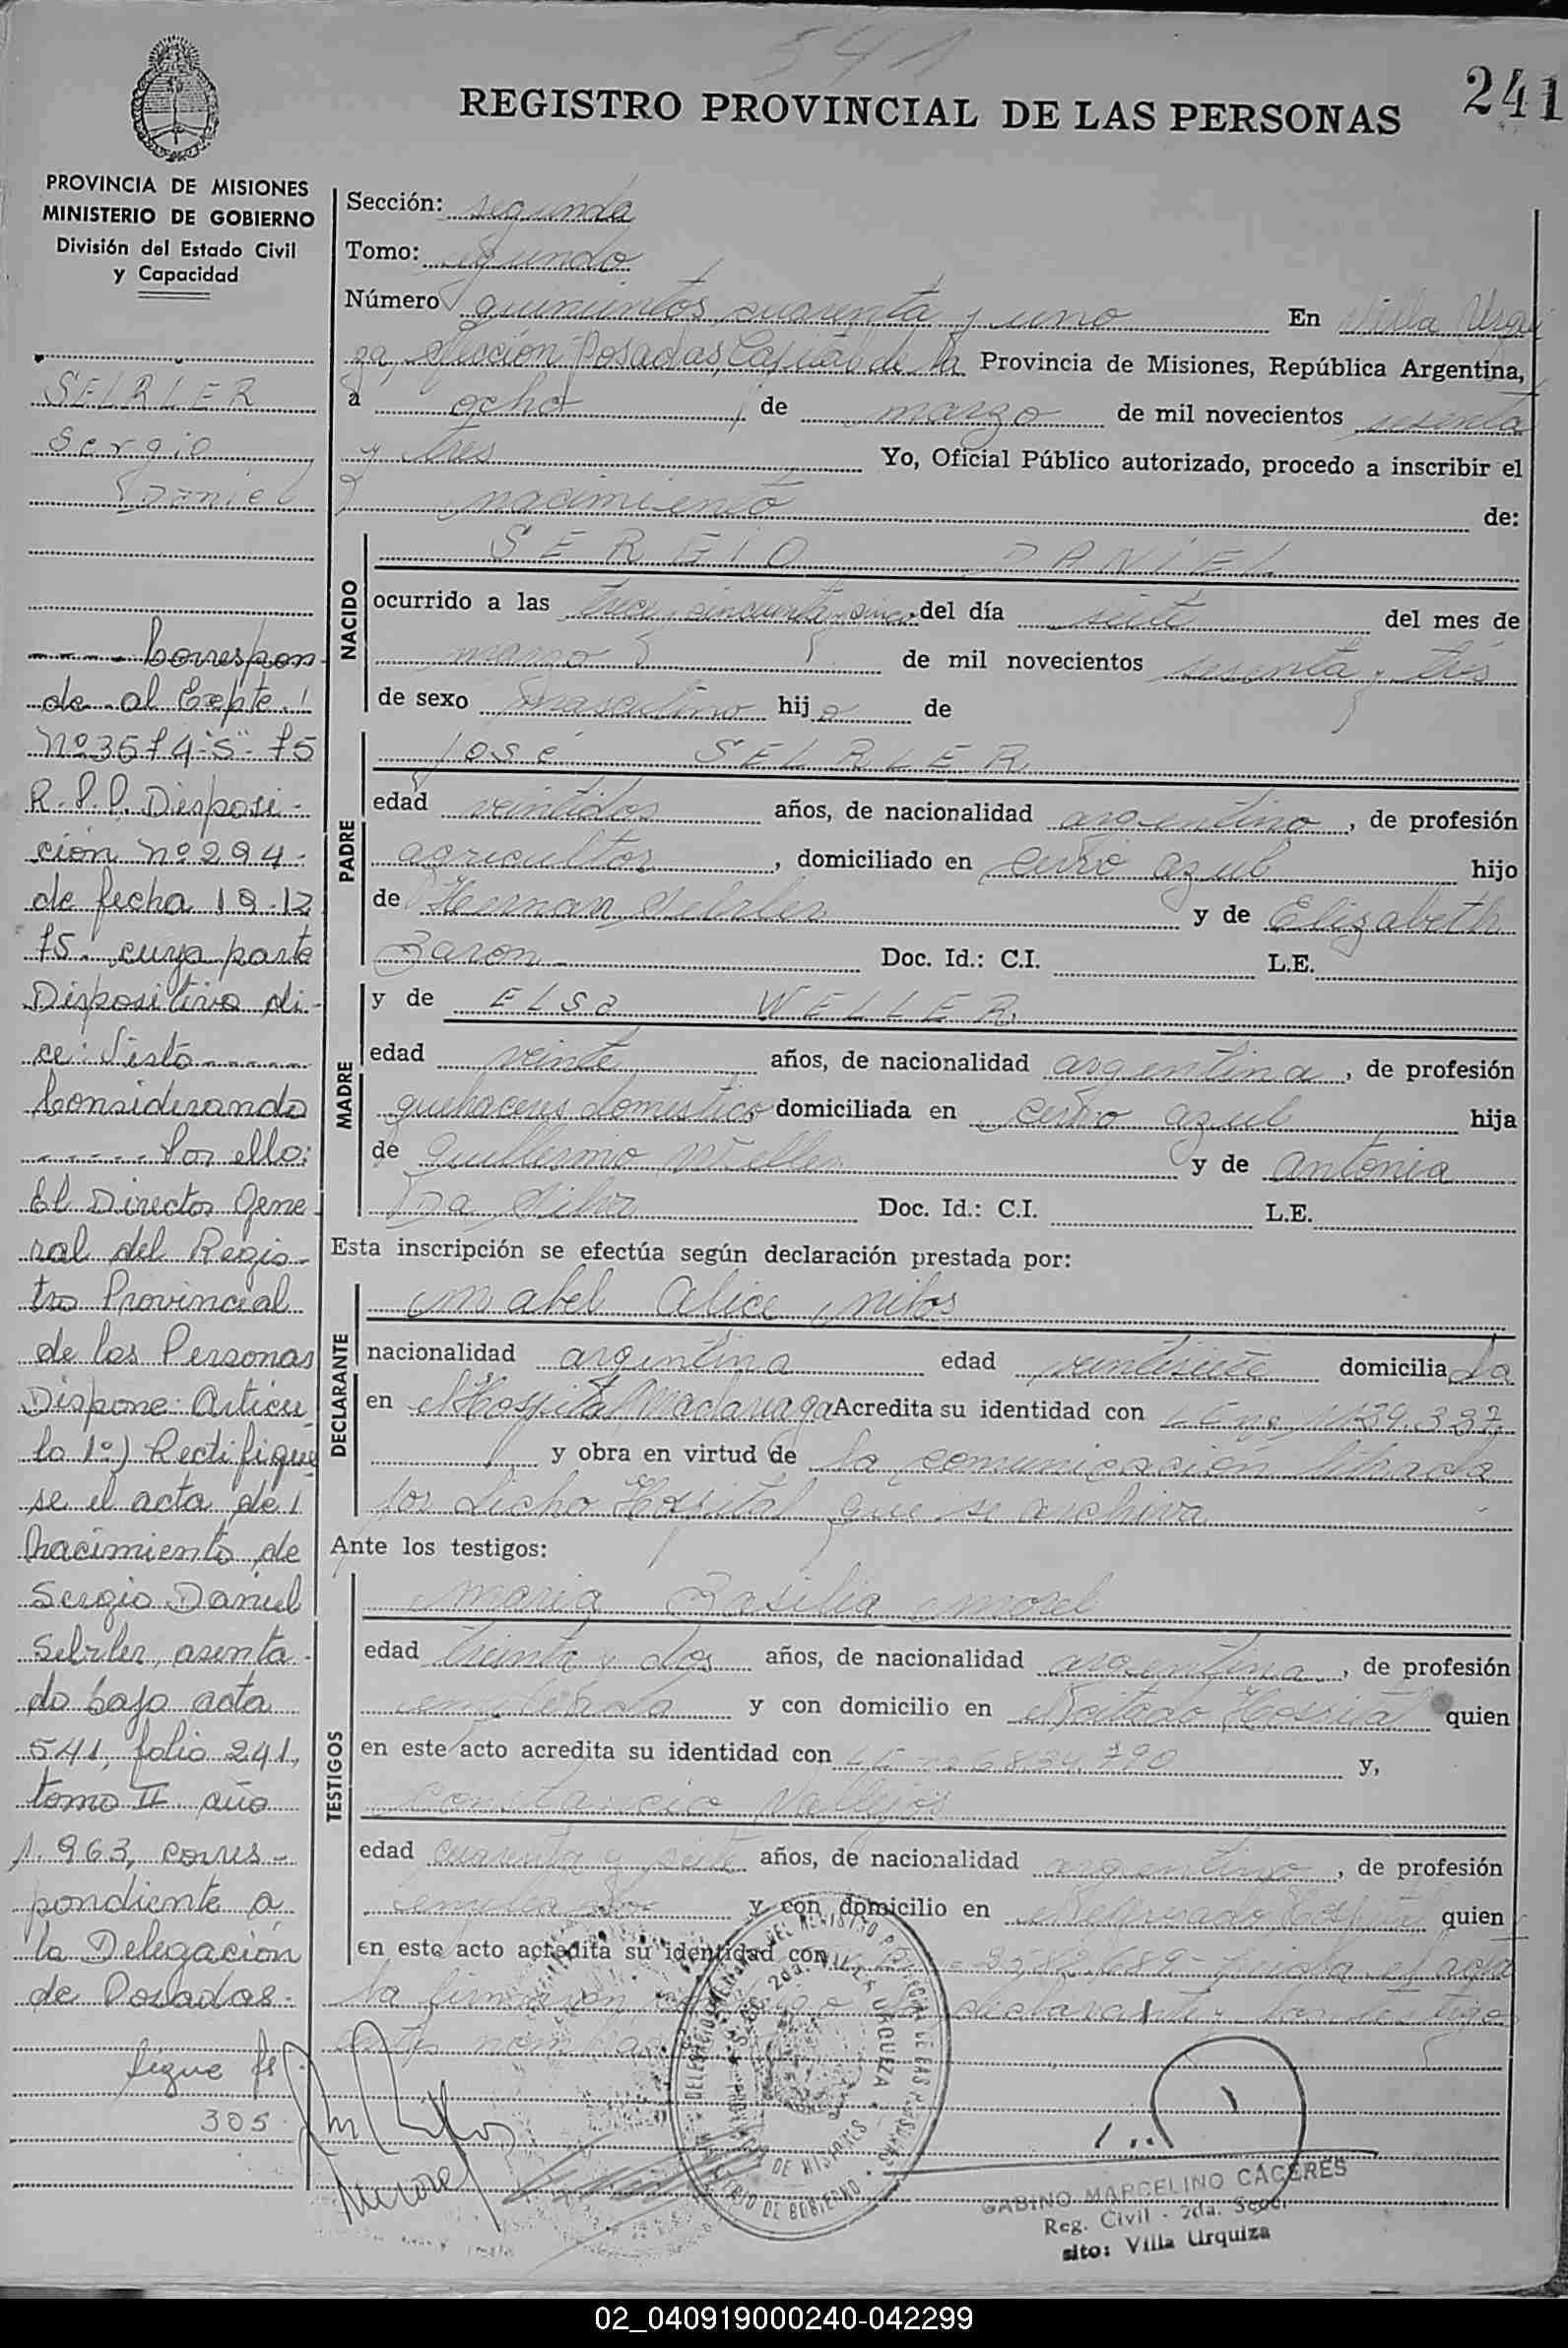 541
REGISTRO PROVINCIAL DE LAS PERSONAS
241
PROVINCIA DE MISIONES
MINISTERIO DE GOBIERNO
División del Estado Civil
y Capacidad
SELRLER
Sergio
Daniel
Correspon-
de al Expte.
Nº 3574-"S"-75
R.P.P. Disposi-
ción nº 294-
de fecha 19-12
75. cuya parte
Dispositiva di-
ce: Visto
Considerando
Por ello:
El Director Gene-
ral del Regis-
tro Provincial
de las Personas
Dispone: Articu-
lo 1º) Rectifique
se el acta de
nacimiento de
Sergio Daniel
Selrler, asenta-
do bajo acta
541, folio 241,
tomo II año
1.963, corres-
pondiente a
la Delegación
de Posadas.
Sigue fs
305
Sección: segunda
Tomo: segundo
Número quinientos cuarenta y uno En Villa Urqui
za, Sección Posadas, Capital de la Provincia de Misiones, República Argentina,
a ocho de marzo de mil novecientos sesenta
y tres Yo, Oficial Público autorizado, procedo a inscribir el
nacimiento de:
NACIDO
SERGIO DANIEL
ocurrido a las trece y cincuenta y cinco del día siete del mes de
marzo de mil novecientos sesenta y tres
de sexo masculino hijo de
PADRE
José SELRLER
edad veintidos años, de nacionalidad argentino, de profesión
agricultor, domiciliado en cerro azul hijo
de Hernan Selrler y de Elizabeth
Baron Doc. Id.: C.I. L.E.
MADRE
y de Elsa WELLER
edad veinte años, de nacionalidad argentina, de profesión
quehaceres domestico domiciliada en cerro azul hija
de Guillermo Weller y de Antonia
Da Silva Doc. Id.: C.I. L.E.
Esta inscripción se efectúa según declaración prestada por:
DECLARANTE
Mabel Alice
nacionalidad argentina edad veintisiete domiciliada
en el Hospital Madariaga Acredita su identidad con
y obra en virtud de la comunicación librada
por dicho Hospital que se archiva
Ante los testigos:
TESTIGOS
Maria Basilia Morel
edad treinta y dos años, de nacionalidad argentina, de profesión
empleada y con domicilio en el citado Hospital quien
en este acto acredita su identidad con y,
Constancio Vallejos
edad cuarenta y siete años, de nacionalidad argentino, de profesión
empleado y con domicilio en el Hospital quien
en este acto acredita su identidad con leida el acta
la firman la declarante y los testigos
antes nombrados
DELEGACION
2da. VILLA URQUIZA
MINISTERIO DE GOBIERNO
GABINO MARCELINO CACERES
Reg. Civil - 2da. Secc.
sito: Villa Urquiza
02_040919000240-042299